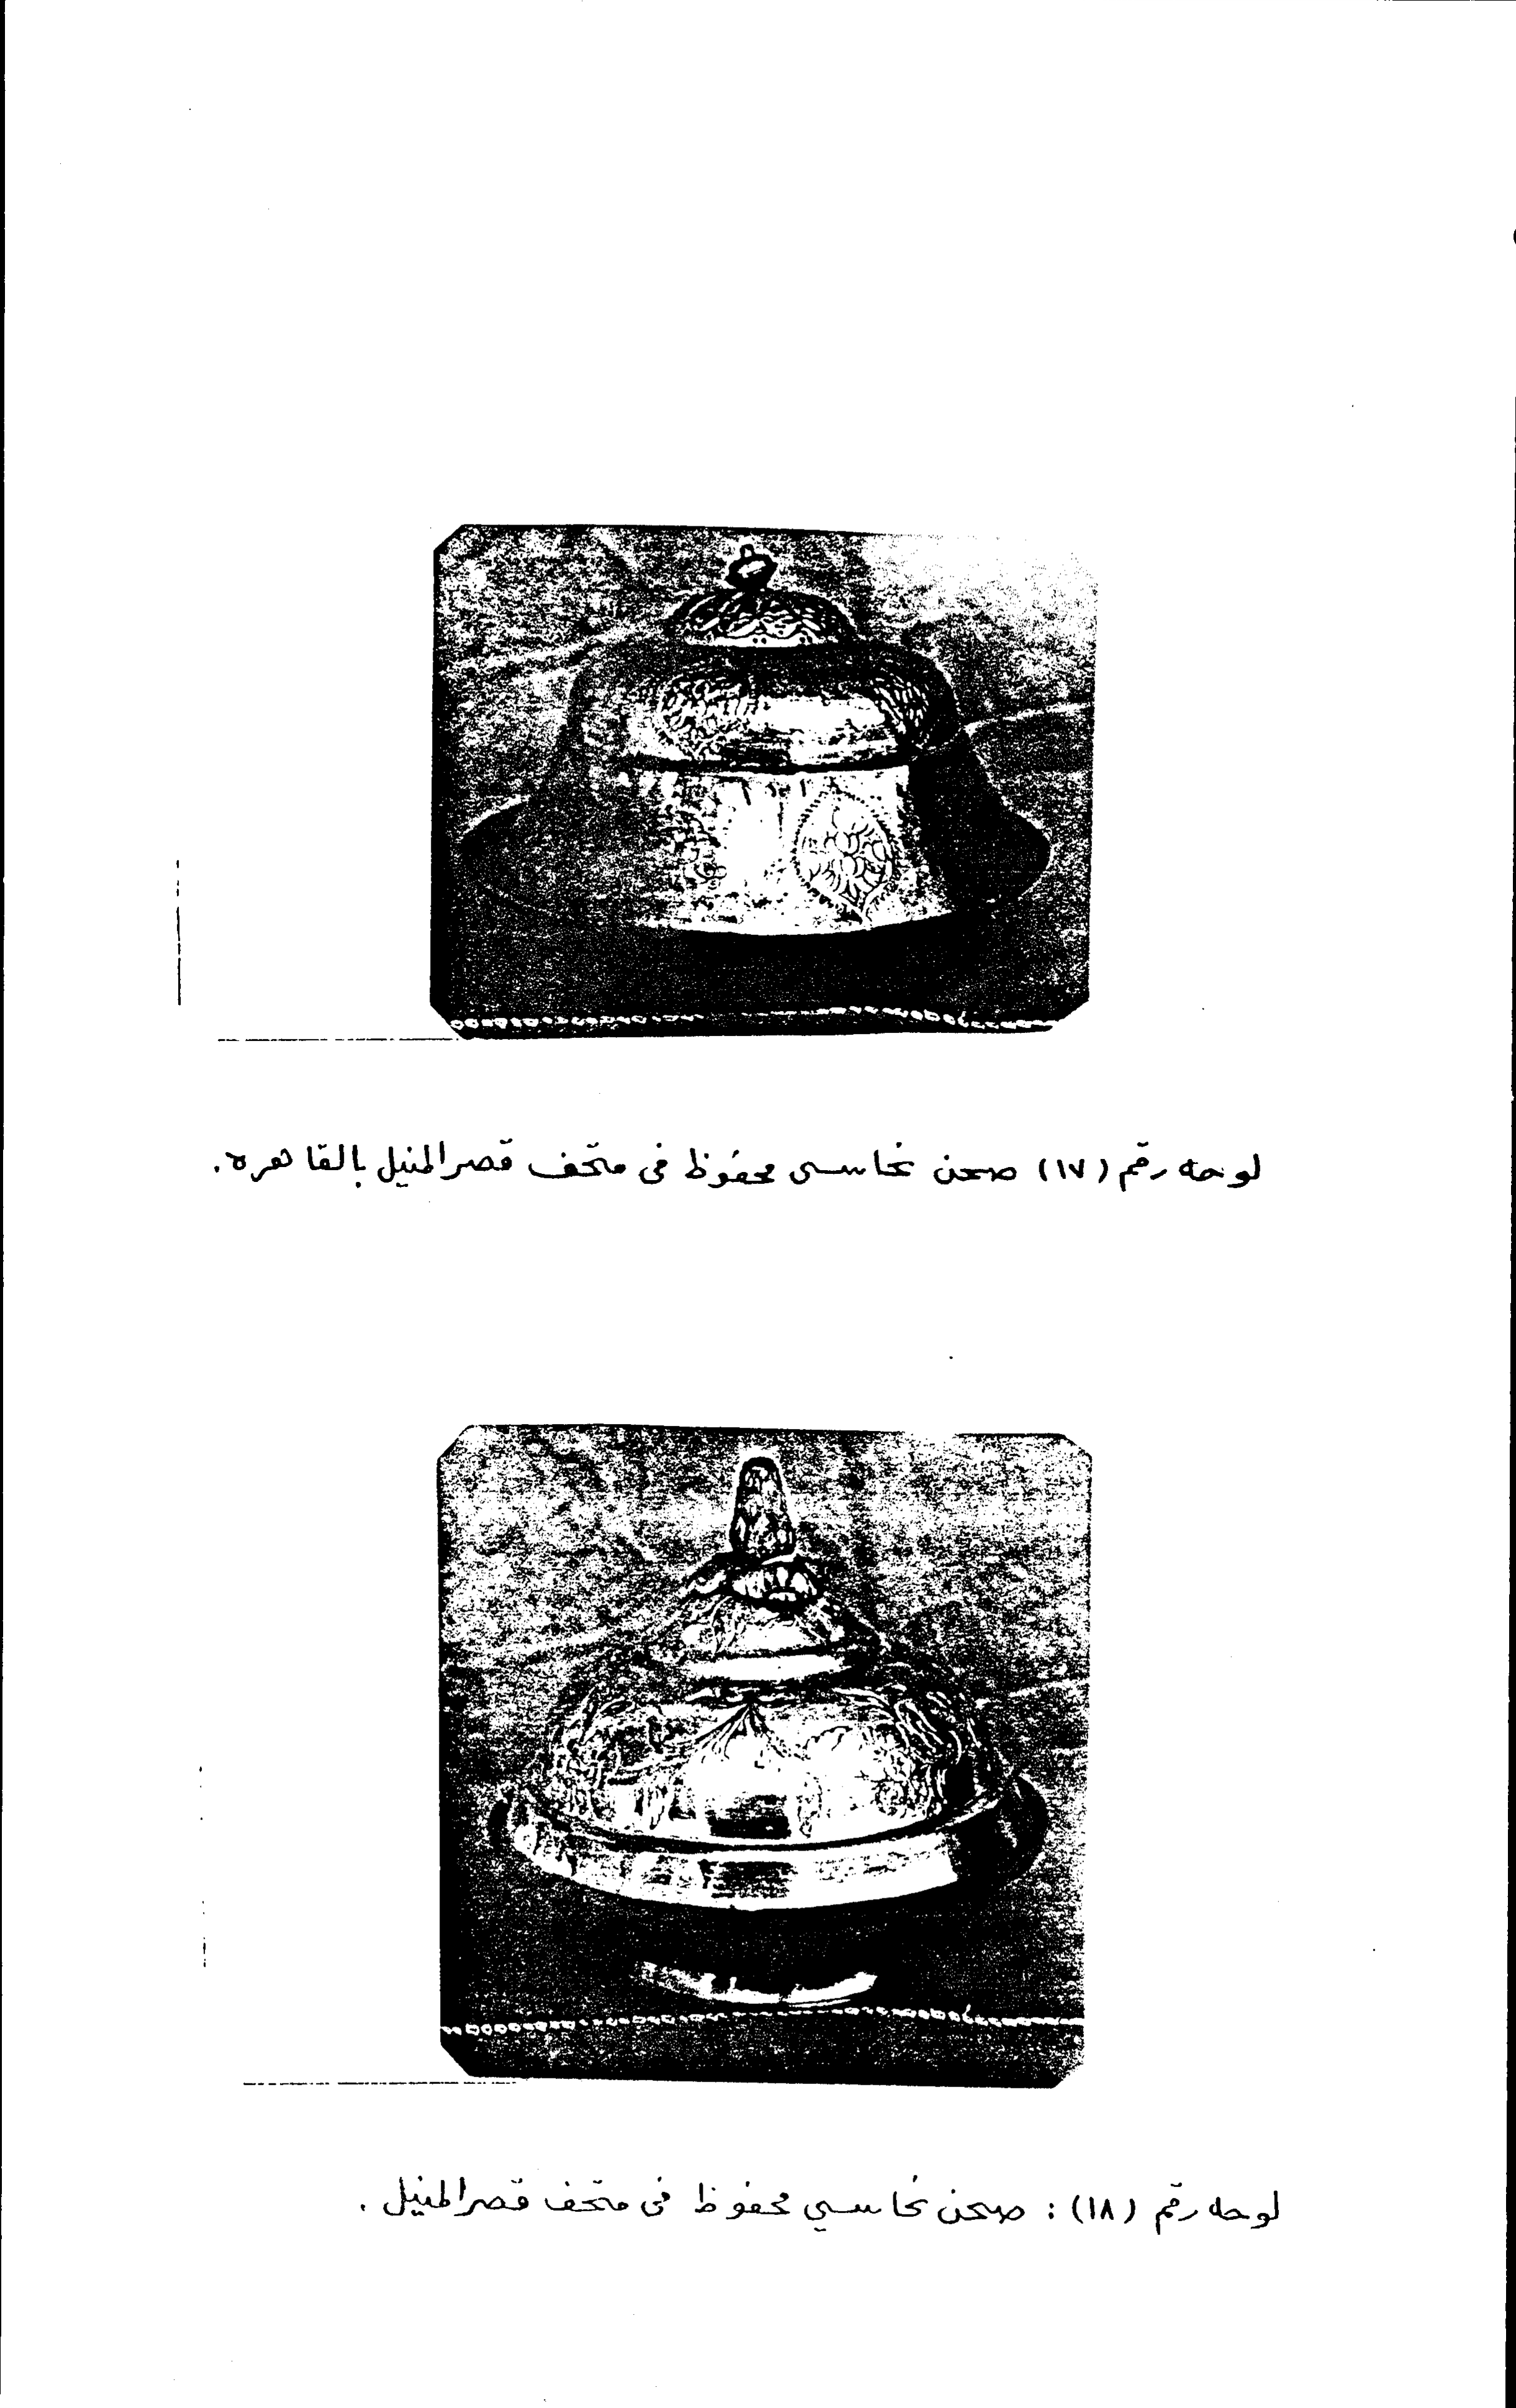 لوحه رقم (١٧) صحن نحاسى محفوظ فى متحف قصر المنيل بالقاهره.
لوحه رقم (١٨) : صحن نحاسي محفوظ فى متحف قصر المنيل .